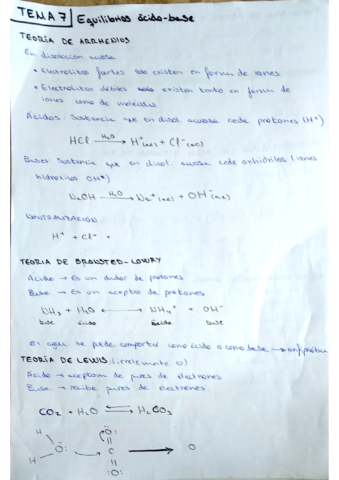 TEMA 7 Equilibrios ácido-base
TEORÍA DE ARRHENIUS
En disolución acuosa
• Electrolitos fuertes solo existen en forma de iones.
• Electrolitos débiles existen tanto en forma de
iones como de moléculas
Ácidos: Sustancia que en disol. acuosa cede protones (H⁺)
HCl —H₂O→ H⁺(ac) + Cl⁻(ac)
Bases: Sustancia que en disol. acuosa cede (iones
hidroxilos OH⁻)
NaOH —H₂O→ Na⁺(ac) + OH⁻(ac)
NEUTRALIZACIÓN
H⁺ + Cl⁻ +
TEORIA DE BRONSTED-LOWRY
Ácido → Es un dador de protones
Base → Es un aceptor de protones
NH₃ + H₂O ⟷ NH₄⁺ + OH⁻
base ácido ácido base
El agua se puede comportar como ácido o como base →
TEORÍA DE LEWIS (irrelevante)
Ácido → aceptan de pares de electrones
Base → recibe pares de electrones.
CO₂ + H₂O ⇌ H₂CO₃
H O
O: C O
H
:O: